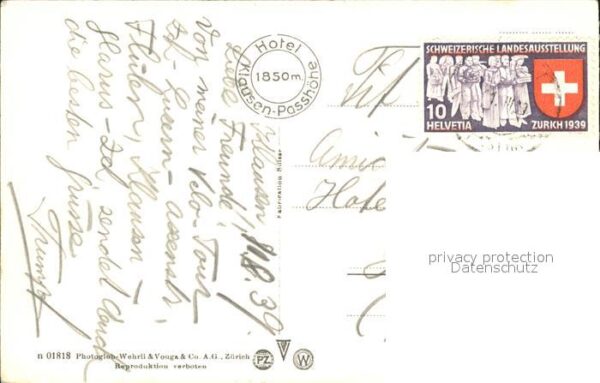 Klausen, 11.8.39.
Liebe Freunde,
Von meiner Velo-Tour
Zch - Luzern - axenstr,
Flüelen, Klausen
Glarus - Zch, sendet Euch
die besten Grüsse
Hotel
Klausen-Passhöhe
1850m
Fabrication Suisse
SCHWEIZERISCHE LANDESAUSSTELLUNG
10
HELVETIA
ZÜRICH 1939
Hote
privacy protection
Datenschutz
n 01818 Photoglob-Wehrli & Vouga & Co. A.G., Zürich
Reproduktion verboten
PZ
V
W